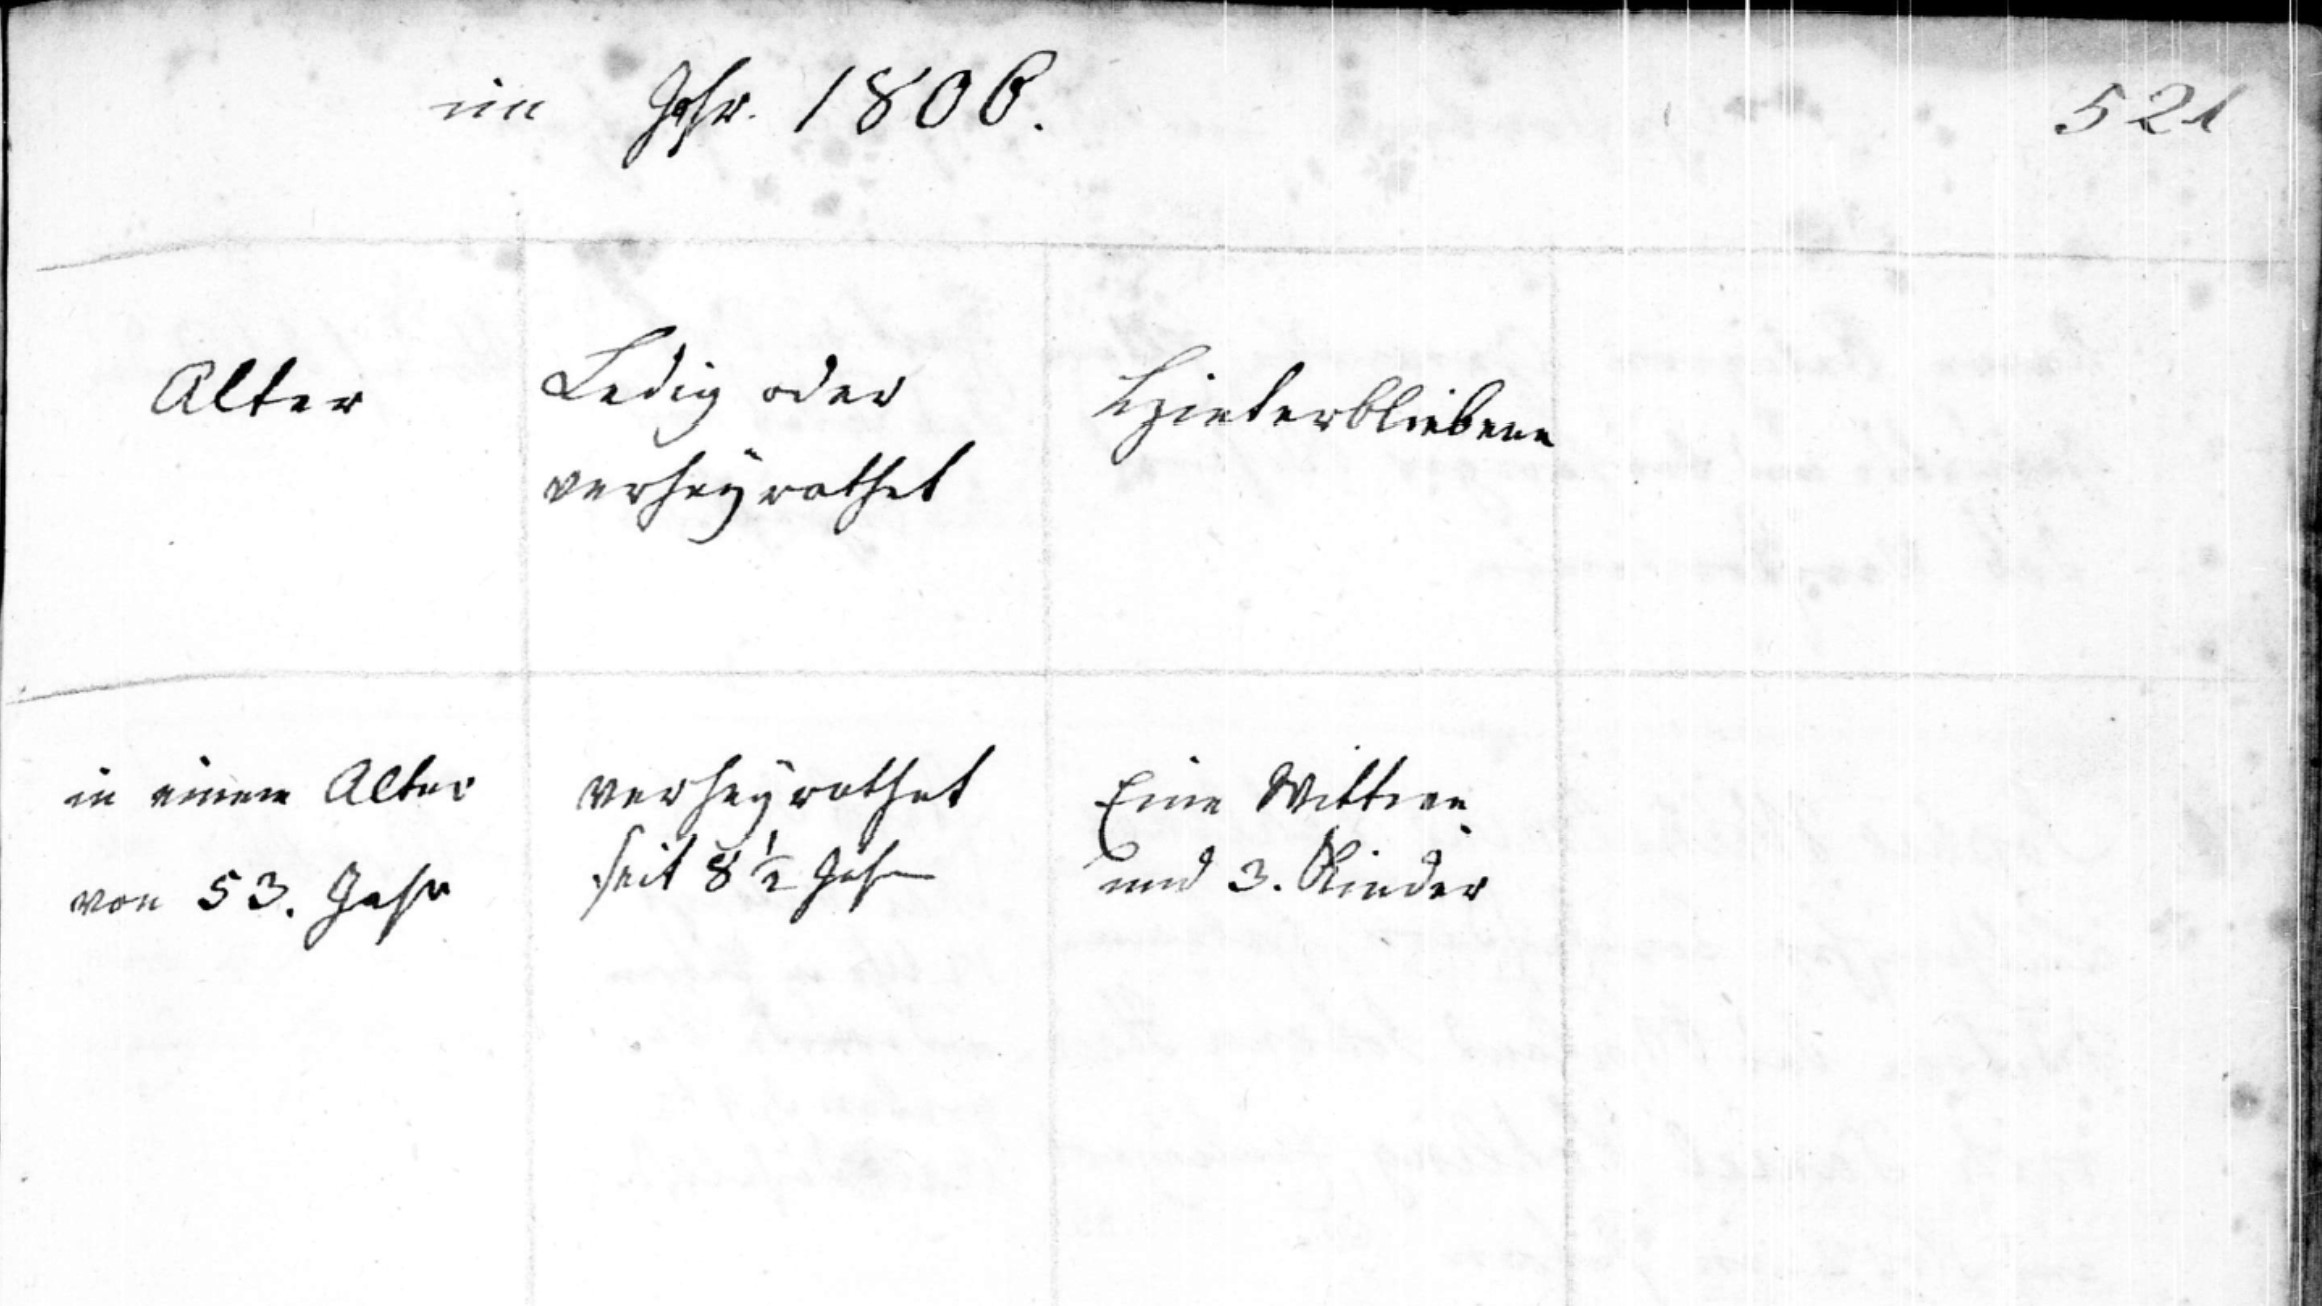 im Jahr. 1806.
521
Alter
Ledig oder
verheÿrathet
Hinterbliebene
in einem Alter
von 53. Jahr
verheÿrathet
seit 8 1/2 Jahr
Eine Wittwe
und 3. Kinder